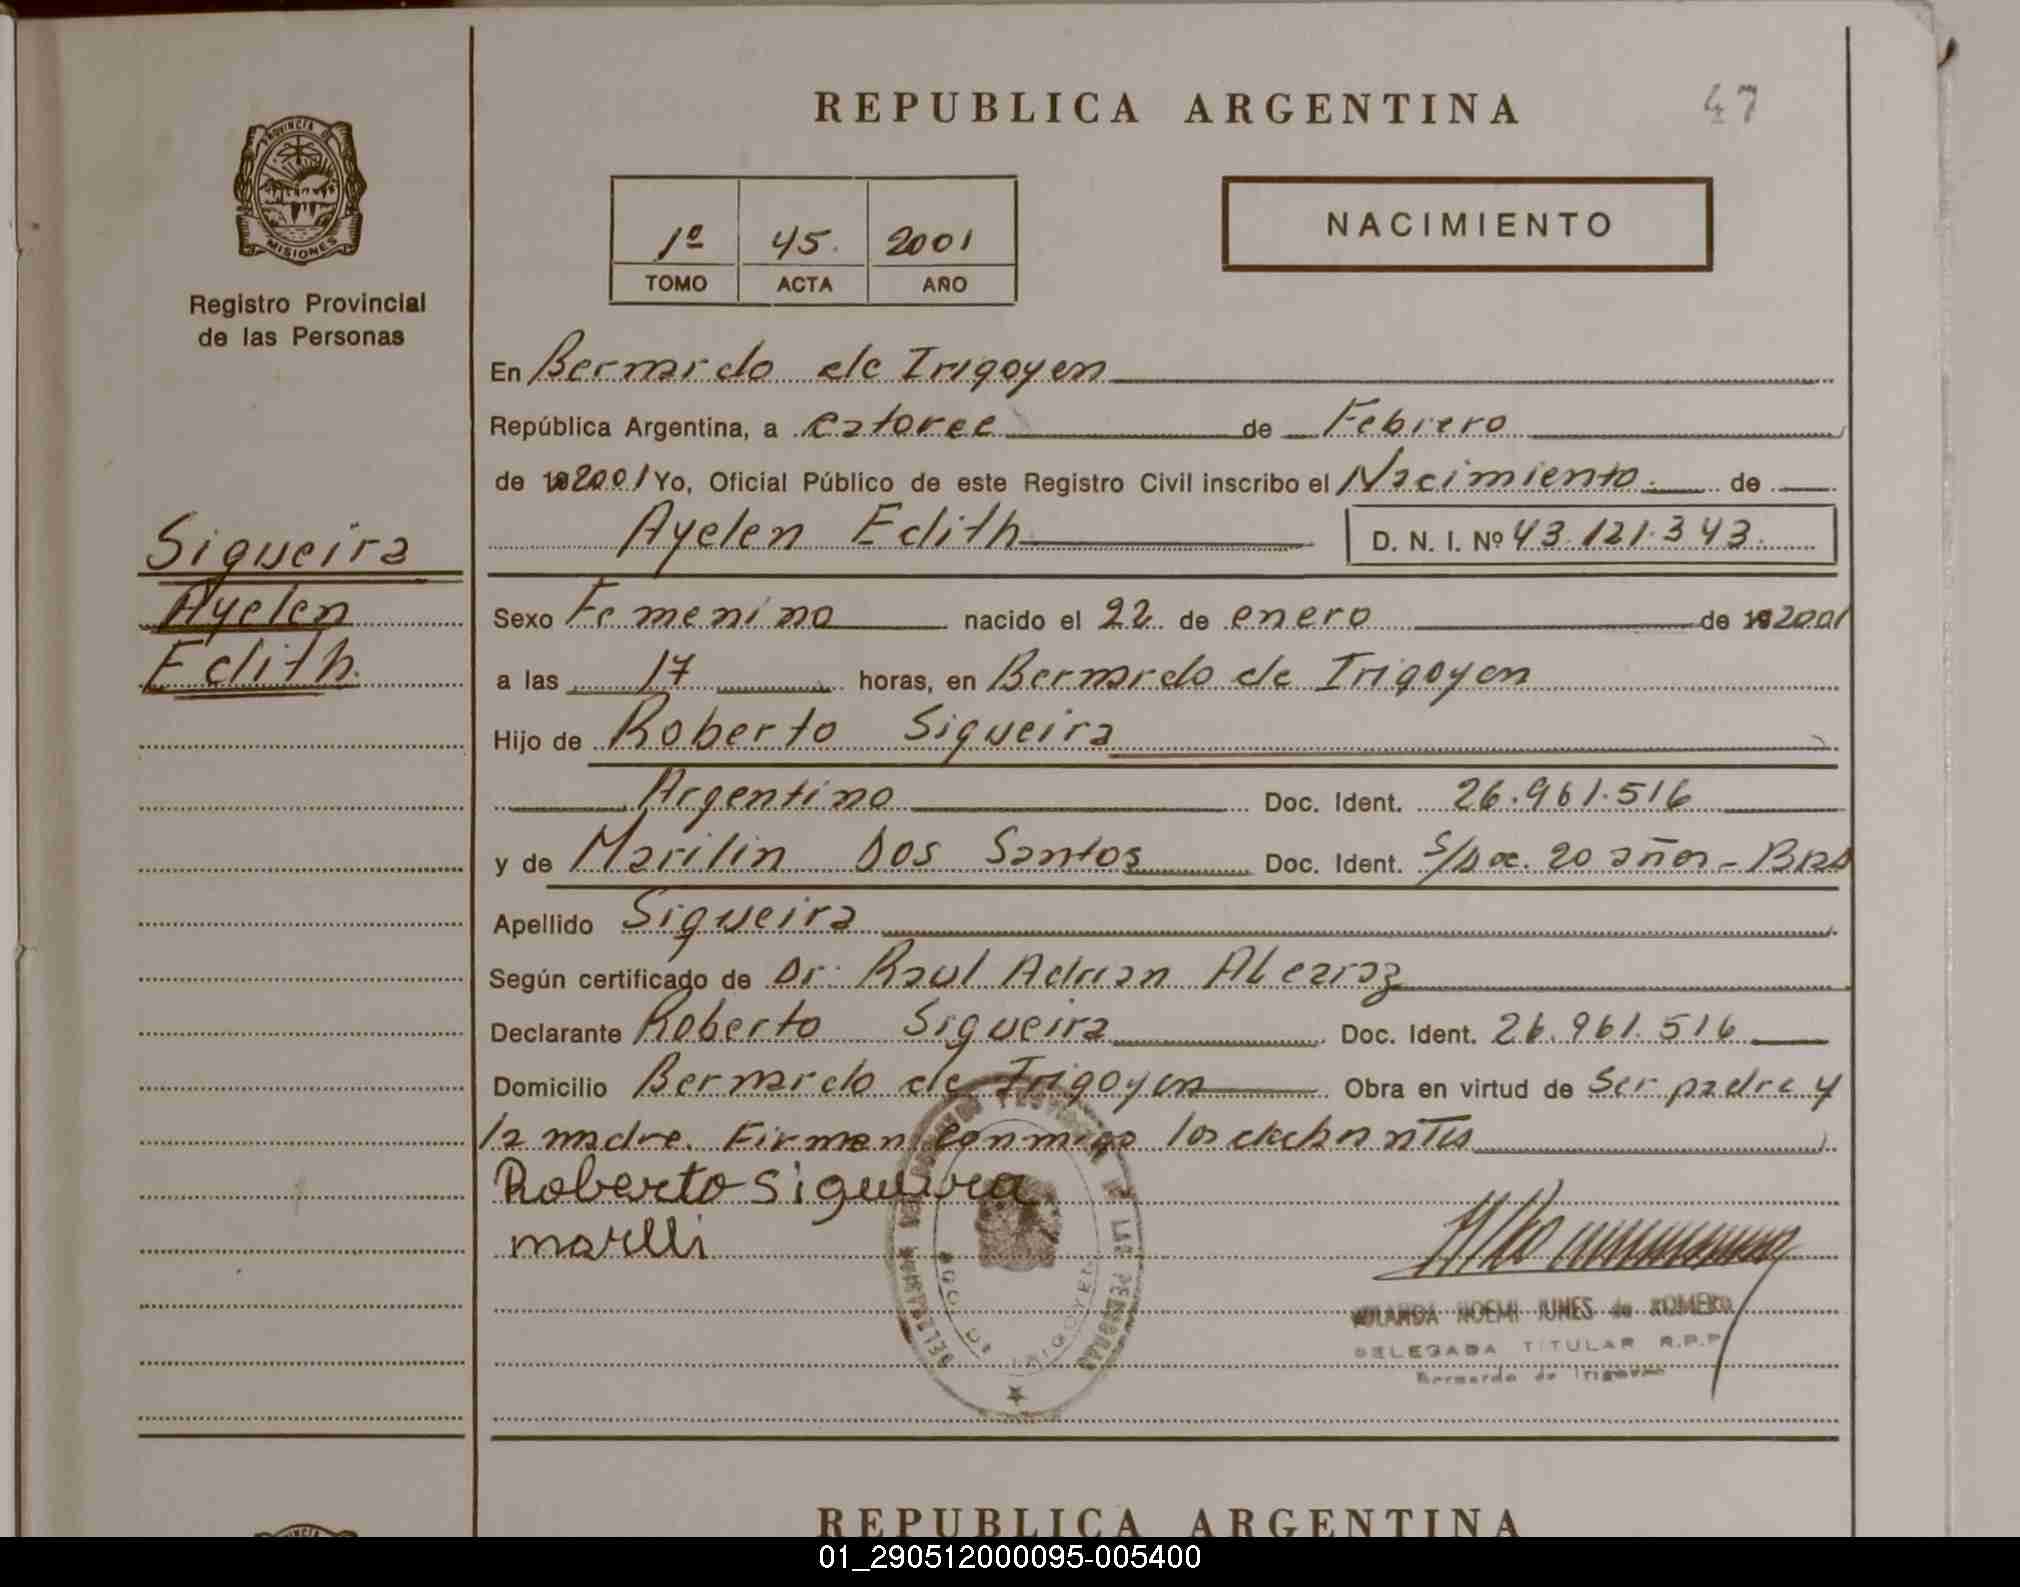 REPUBLICA ARGENTINA
47
PROVINCIA DE
MISIONES
Registro Provincial
de las Personas
1º 45. 2001
TOMO ACTA AÑO
NACIMIENTO
En Bernardo de Irigoyen
República Argentina, a catorce de Febrero
de 2001 Yo, Oficial Público de este Registro Civil inscribo el Nacimiento de
Ayelen Edith D. N. I. Nº 43.121.343
Siqueira
Ayelen
Edith.
Sexo Femenino nacido el 22 de enero de 2001
a las 17 horas, en Bernardo de Irigoyen
Hijo de Roberto Siqueira
Argentino Doc. Ident. 26.961.516
y de Marilin Dos Santos Doc. Ident. S/Doc. 20 años - Bras
Apellido Siqueira
Según certificado de Dr. Raul Adrian Alcaraz
Declarante Roberto Siqueira Doc. Ident. 26.961.516
Domicilio Bernardo de Irigoyen Obra en virtud de Ser padre y
la madre. Firman conmigo los
Roberto Siqueira
marlli
NOEMI JUNES de ROMERO
DELEGADA TITULAR R.P.P
Bernardo de Irigoyen
DE LAS PERSONAS
BDO. DE IRIGOYEN
REPUBLICA ARGENTINA
01_290512000095-005400